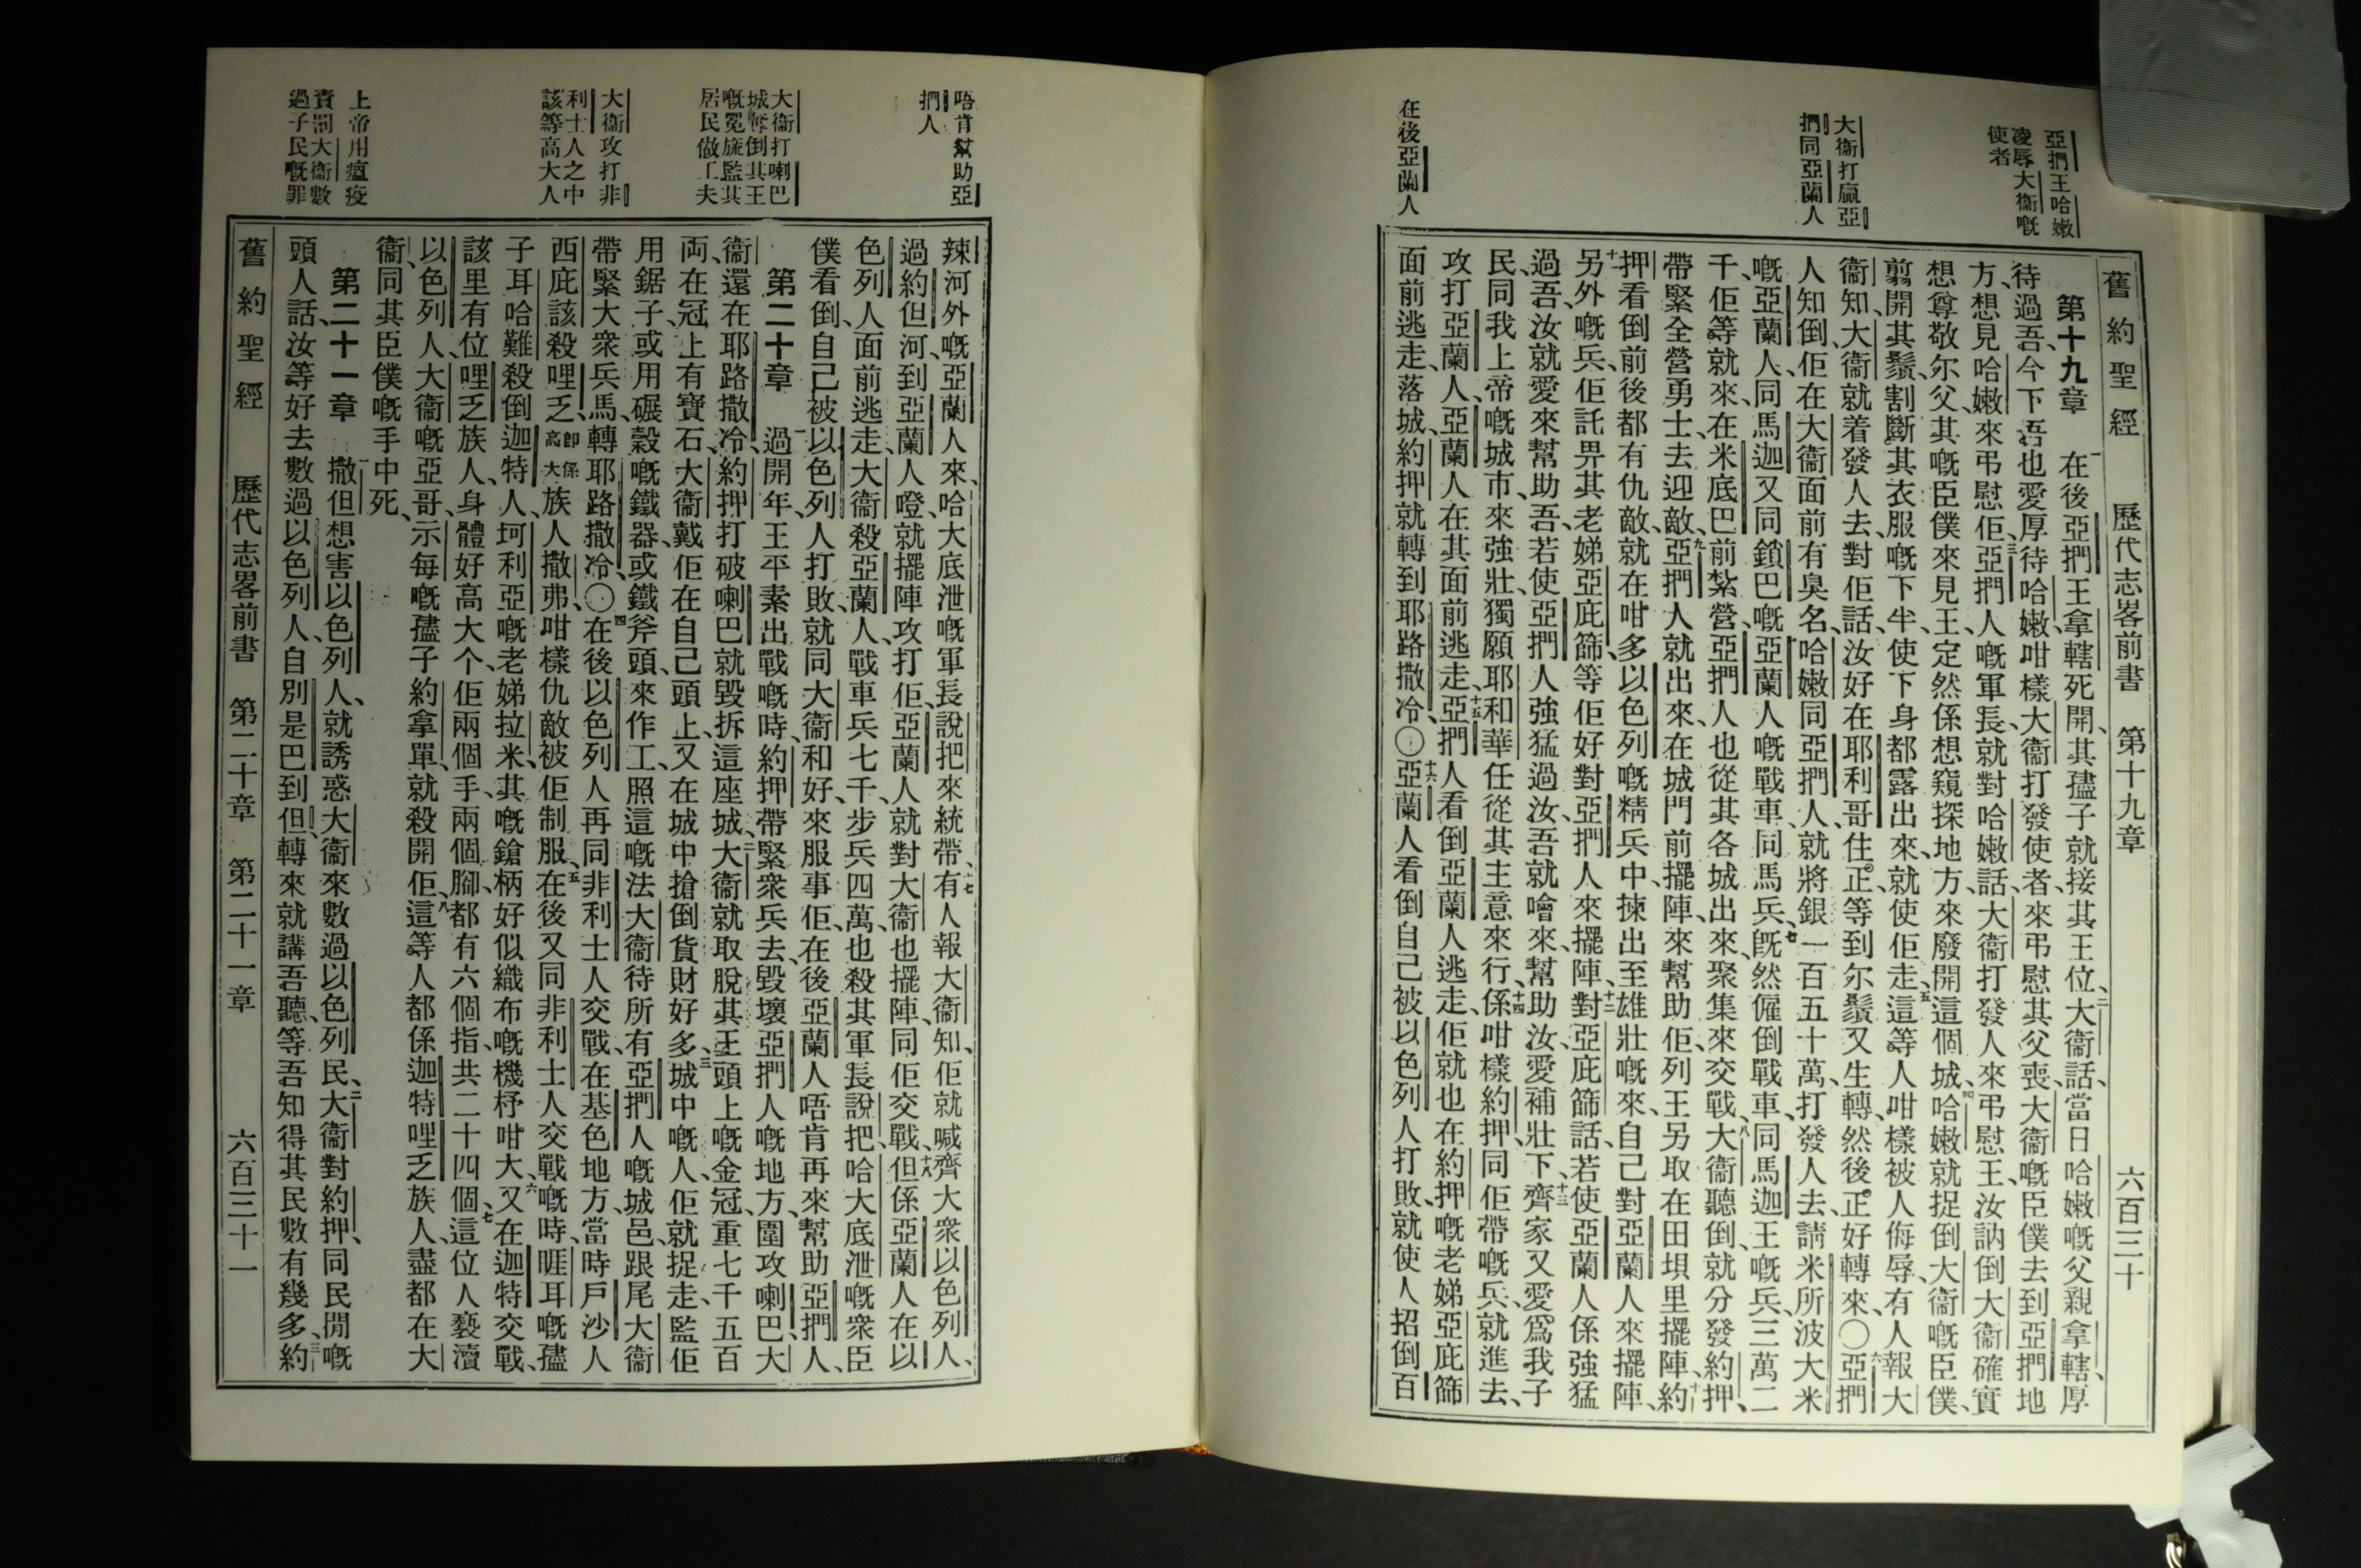 亞捫王哈嫩
凌辱大衞嘅
使者
大衞打贏亞
捫同亞蘭人
在後亞蘭人
舊約聖經 歷代志畧前書 第十九章 六百三十
第十九章 一在後亞捫王拿轄死開、其孻子就接其王位、二大衞話、當日哈嫩嘅父親拿轄、厚
待過吾、今下吾也愛厚待哈嫩、咁樣大衞打發使者、來弔慰其父喪、大衞嘅臣僕去到亞捫地
方、想見哈嫩、來弔慰佢、三亞捫人嘅軍長、就對哈嫩話、大衞打發人來弔慰王、汝訥倒大衞確實
想尊敬尔父、其嘅臣僕來見王、定然係想窺探地方、來廢開這個城、四哈嫩就捉倒大衞嘅臣僕、
剪開其鬚、割斷其衣服嘅下半、使下身都露出來、就使佢走、五這等人咁樣被人侮辱、有人報大
衞知、大衞就着發人去對佢話、汝好在耶利哥住、正等到尔鬚又生轉、然後正好轉來、〇六亞捫
人知倒、佢在大衞面前有臭名、哈嫩同亞捫人、就將銀一百五十萬、打發人去請米所波大米
嘅亞蘭人、同馬迦又同鎖巴嘅亞蘭人嘅戰車、同馬兵、七旣然僱倒戰車、同馬迦王嘅兵、三萬二
千、佢等就來、在米底巴前紮營、亞捫人也從其各城出來、聚集來交戰、八大衞聽倒、就分發約押、
帶緊全營勇士、去迎敵、九亞捫人就出來、在城門前擺陣、來幫助佢、列王另取在田垻里擺陣、十約
押看倒前後都有仇敵、就在咁多以色列嘅精兵中、揀出至雄壯嘅來、自己對亞蘭人來擺陣、
十一另外嘅兵、佢託畀其老娣亞庇篩、等佢好對亞捫人來擺陣、十二對亞庇篩話、若使亞蘭人係強猛
過吾、汝就愛來幫助吾、若使亞捫人強猛過汝、吾就噲來幫助汝、十三愛補壯下、齊家又愛爲我子
民、同我上帝嘅城市、來強壯、獨願耶和華任從其主意來行、十四係咁樣約押、同佢帶嘅兵、就進去、
攻打亞蘭人、亞蘭人在其面前逃走、十五亞捫人看倒亞蘭人逃走、佢就也在約押嘅老娣亞庇篩
面前逃走、落城、約押就轉到耶路撒冷、〇十六亞蘭人看倒自己被以色列人打敗、就使人招倒百
唔肯幫助亞
捫人
大衞打喇巴
城奪倒其王
嘅冕旒監其
居民做工夫
大衞攻打非
利士人之中
該等高大人
上帝用瘟疫
責罰大衞數
過子民嘅罪
辣河外嘅亞蘭人來、哈大底泄嘅軍長說把來統帶、十七有人報大衞知、佢就喊齊大衆以色列人、
過約但河、到亞蘭人嶝、就擺陣攻打佢、亞蘭人就對大衞也擺陣、同佢交戰、十八但係亞蘭人在以
色列人面前逃走、大衞殺亞蘭人、戰車兵七千、步兵四萬、也殺其軍長說把、哈大底泄嘅衆臣
僕看倒、自己被以色列人打敗、就同大衞和好、來服事佢、在後亞蘭人唔肯再來幫助亞捫人、
第二十章 一過開年、王平素出戰嘅時、約押帶緊衆兵去、毀壞亞捫人嘅地方、圍攻喇巴、大
衞還在耶路撒冷、約押打破喇巴就毀拆這座城、二大衞就取脫其王頭上嘅金冠、重七千五百
両、在冠上有寶石、大衞戴佢在自己頭上、又在城中搶倒貨財好多、三城中嘅人、佢就捉走、監佢
用鋸子、或用碾穀嘅鐵器、或鐵斧頭、來作工、照這嘅法、大衞待所有亞捫人嘅城邑、跟尾大衞
帶緊大衆兵馬、轉耶路撒冷、〇四在後以色列人再同非利士人交戰、在基色地方、當時戶沙人
西庇該殺哩乏、卽係高大族人撒弗、咁樣仇敵被佢制服、五在後又同非利士人交戰嘅時、睚耳嘅孻
子耳哈難、殺倒迦特人坷利亞嘅老娣拉米、其嘅鎗柄好似織布嘅機杼咁大、六又在迦特交戰、
該里有位哩乏族人、身體好高大个、佢兩個手、兩個腳、都有六個指、共二十四個、七這位人褻瀆
以色列人、大衞嘅亞哥、示每嘅孻子約拿單、就殺開佢、八這等人都係迦特哩乏族人、盡都在大
衞、同其臣僕嘅手中死、
第二十一章 一撒但想害以色列人、就誘惑大衞來數過以色列民、二大衞對約押、同民間嘅
頭人話、汝等好去數過以色列人、自別是巴到但、轉來就講吾聽、等吾知得其民數有幾多、三約
舊約聖經 歷代志畧前書 第二十章 第二十一章 六百三十一